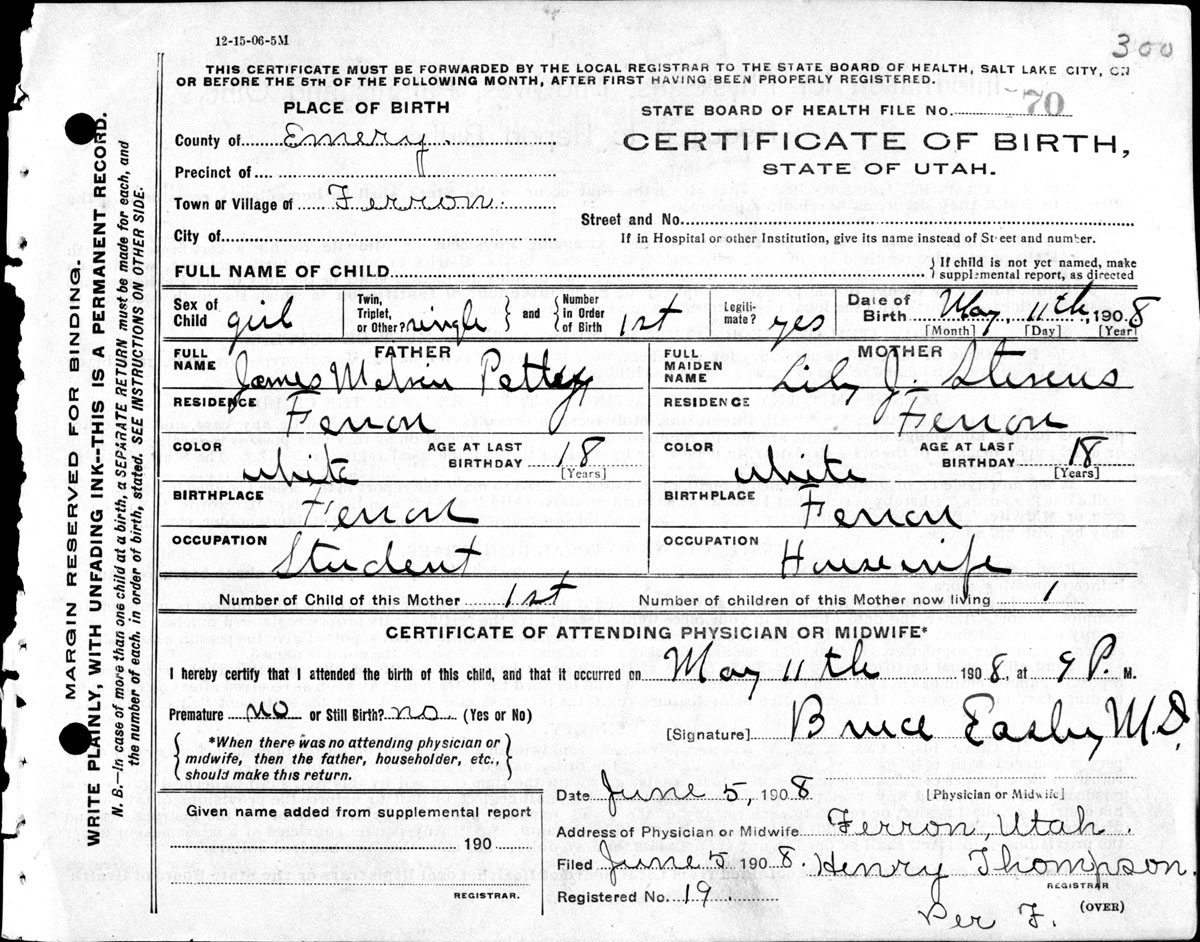 12-15-06-5M
300
THIS CERTIFICATE MUST BE FORWARDED BY THE LOCAL REGISTRAR TO THE STATE BOARD OF HEALTH, SALT LAKE CITY, ON
OR BEFORE THE 5TH OF THE FOLLOWING MONTH, AFTER FIRST HAVING BEEN PROPERLY REGISTERED.
PLACE OF BIRTH
STATE BOARD OF HEALTH FILE No. 70
County of Emery.
CERTIFICATE OF BIRTH,
STATE OF UTAH.
Precinct of
Town or Village of Ferron.
Street and No.
City of
If in Hospital or other Institution, give its name instead of Street and number.
FULL NAME OF CHILD
{ If child is not yet named, make
supplemental report, as directed
Sex of Child girl
Twin, Triplet, or Other? single } and { Number in Order of Birth 1st
Legiti-mate? yes
Date of Birth May 11th, 1908
[Month] [Day] [Year]
FATHER
FULL NAME James Melvin Pettey
RESIDENCE Ferron
COLOR white AGE AT LAST BIRTHDAY 18 [Years]
BIRTHPLACE Ferron
OCCUPATION Student
MOTHER
FULL MAIDEN NAME Lily J. Stevens
RESIDENCE Ferron
COLOR white AGE AT LAST BIRTHDAY 18 [Years]
BIRTHPLACE Ferron
OCCUPATION Housewife
Number of Child of this Mother 1st Number of children of this Mother now living 1
CERTIFICATE OF ATTENDING PHYSICIAN OR MIDWIFE*
I hereby certify that I attended the birth of this child, and that it occurred on May 11th 1908, at 9 P. M.
Premature no or Still Birth? no (Yes or No)
{ *When there was no attending physician or
midwife, then the father, householder, etc.,
should make this return. }
[Signature] Bruce Easley M.D.
[Physician or Midwife]
Date June 5, 1908
Given name added from supplemental report
190
REGISTRAR.
Address of Physician or Midwife Ferron, Utah.
Filed June 5 1908. Henry Thompson.
REGISTRAR
Registered No. 19. Per F. (OVER)
MARGIN RESERVED FOR BINDING.
WRITE PLAINLY, WITH UNFADING INK--THIS IS A PERMANENT RECORD.
N. B.—In case of more than one child at a birth, a SEPARATE RETURN must be made for each, and
the number of each, in order of birth, stated. SEE INSTRUCTIONS ON OTHER SIDE.